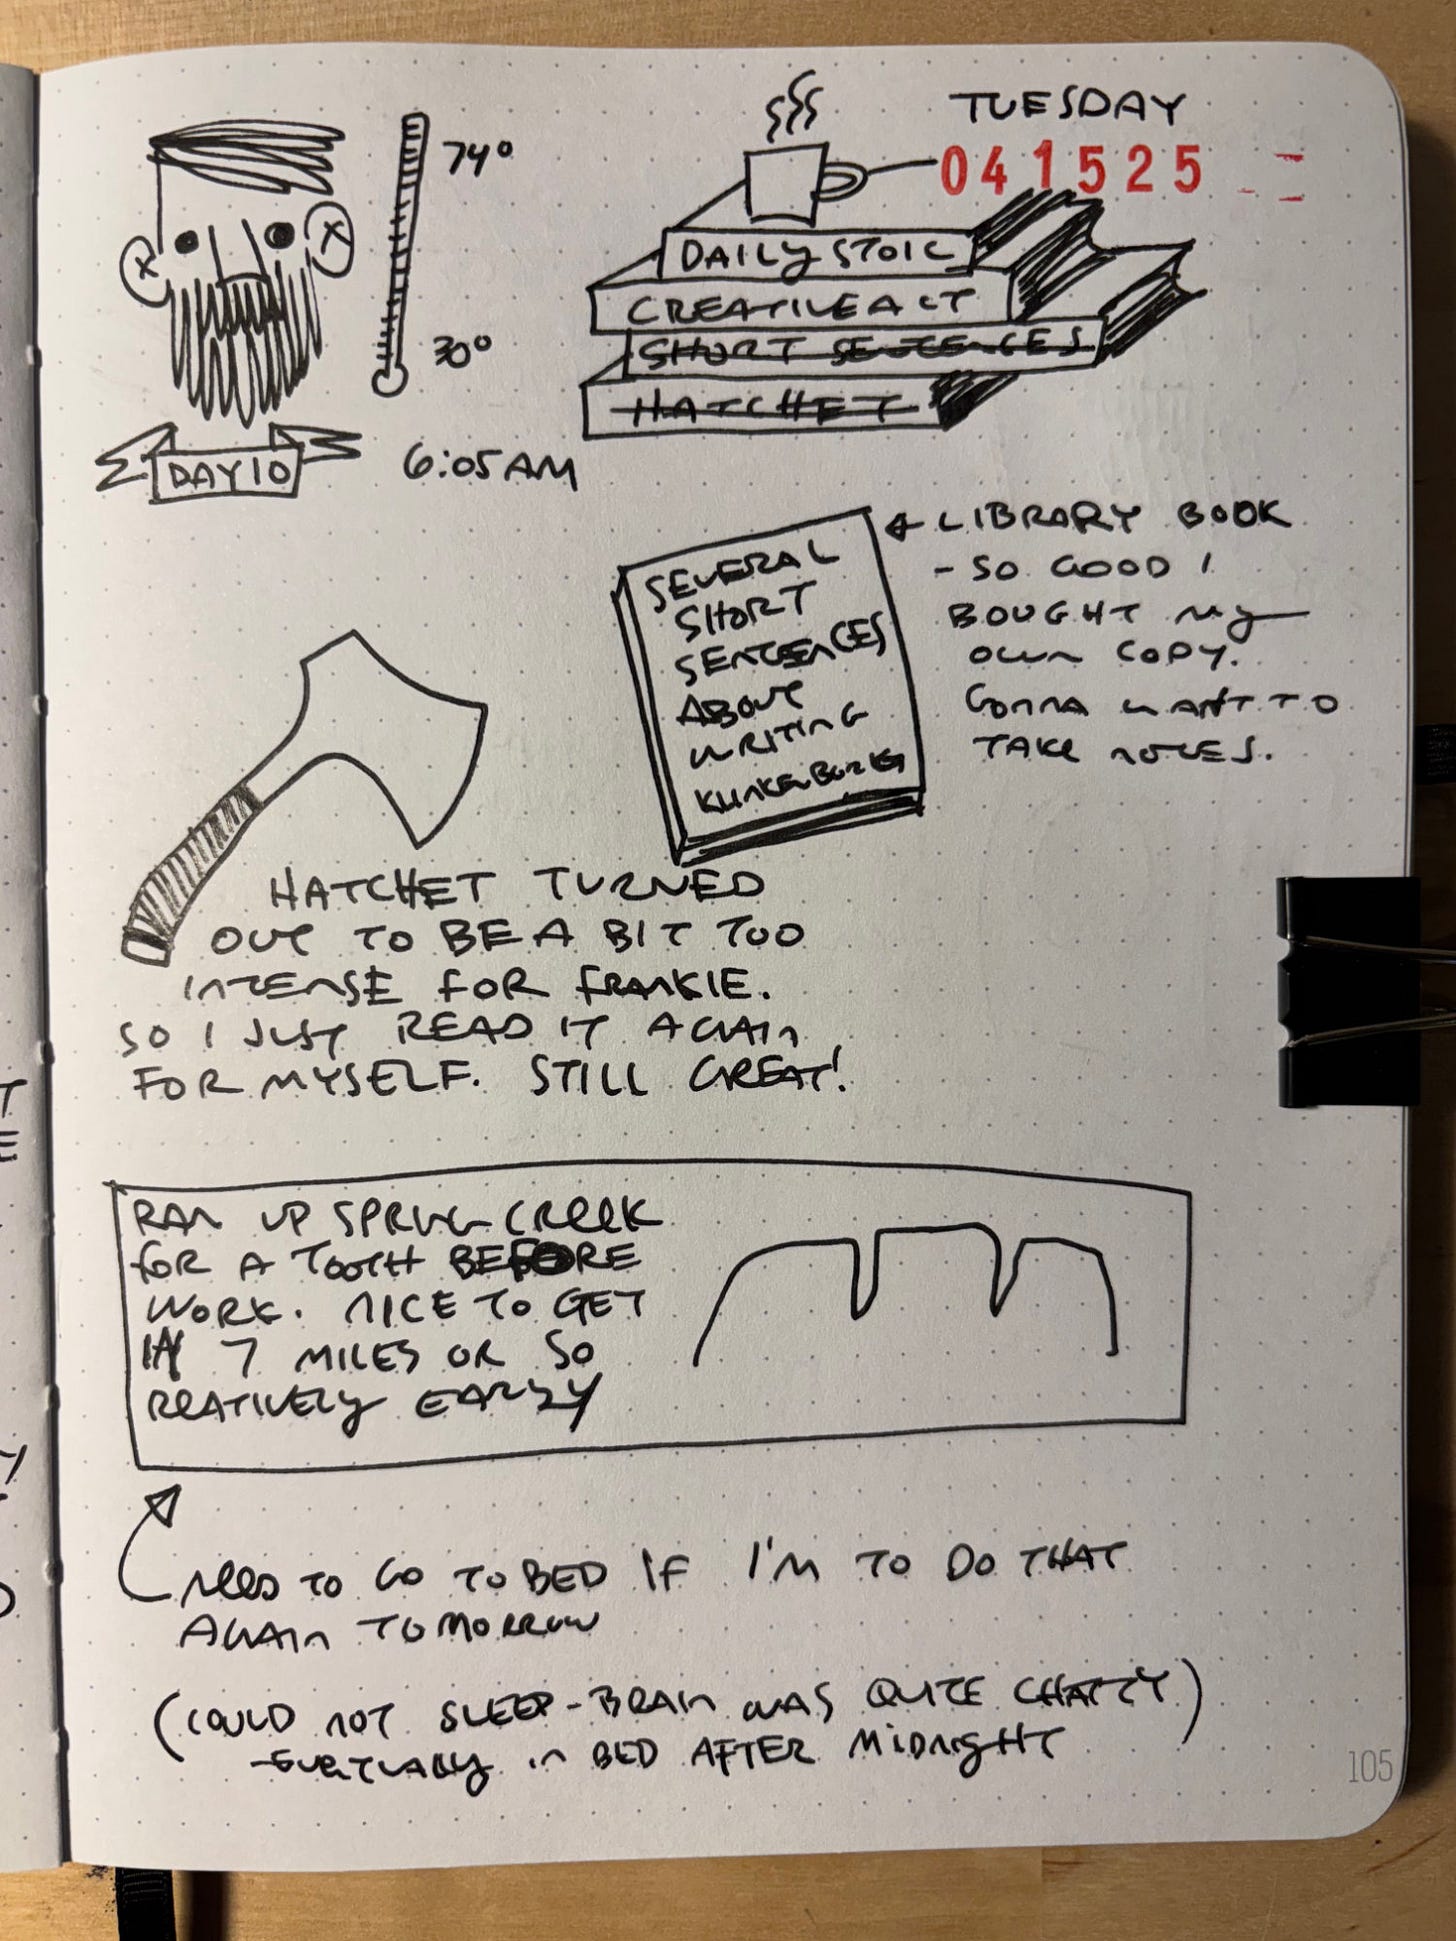 TUESDAY
041525
74°
30°
DAILY STOIC
CREATIVE ACT
SHORT SENTENCES
HATCHET
DAY 10
6:05AM
SEVERAL
SHORT
SENTENCES
ABOUT
WRITING
KLINKENBORG
← LIBRARY BOOK
- SO GOOD I
BOUGHT MY
OWN COPY.
GONNA WANT TO
TAKE NOTES.
HATCHET TURNED
OUT TO BE A BIT TOO
INTENSE FOR FRANKIE.
SO I JUST READ IT AGAIN
FOR MYSELF. STILL GREAT!
RAN UP SPRING CREEK
FOR A TOOTH BEFORE
WORK. NICE TO GET
IN 7 MILES OR SO
REATIVELY EARLY
NEED TO GO TO BED IF I'M TO DO THAT
AGAIN TOMORROW
(COULD NOT SLEEP - BRAIN WAS QUITE CHATTY)
- EVENTUALLY IN BED AFTER MIDNIGHT
105